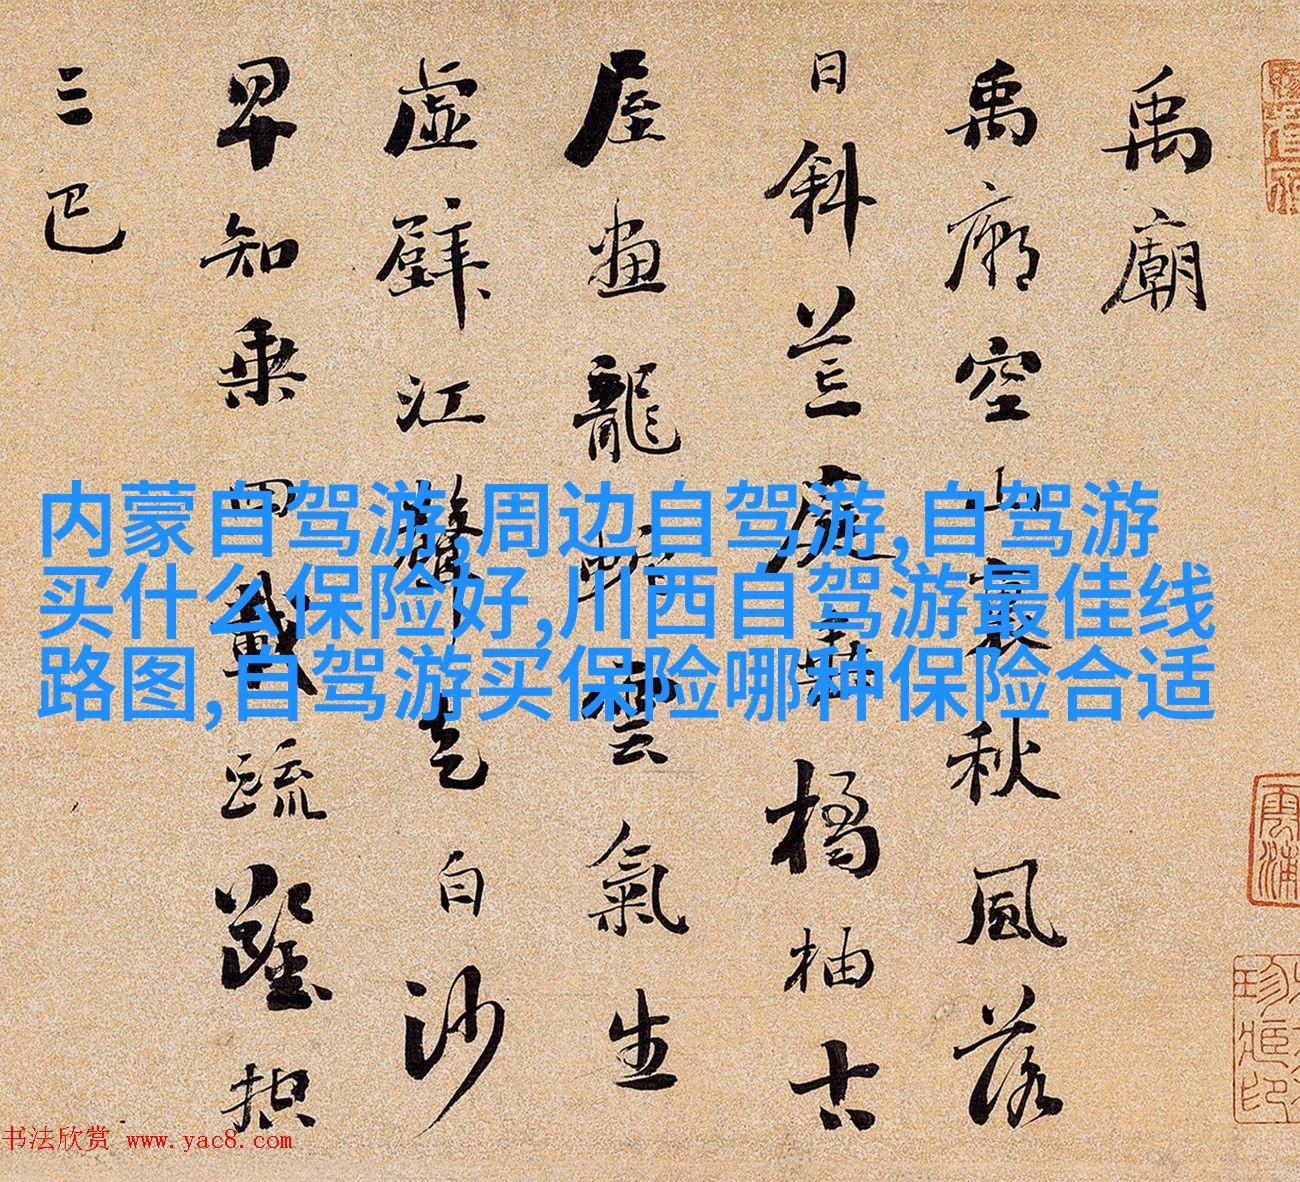 禹廟
禹廟空山裏秋風落
日斜荒庭垂橘柚古
屋畫龍蛇雲氣生
虛壁江聲走白沙
早知乘四載疏鑿控
三巴
内蒙自驾游,周边自驾游,自驾游
买什么保险好,川西自驾游最佳线
路图,自驾游买保险哪种保险合适
书法欣赏 www.yac8.com